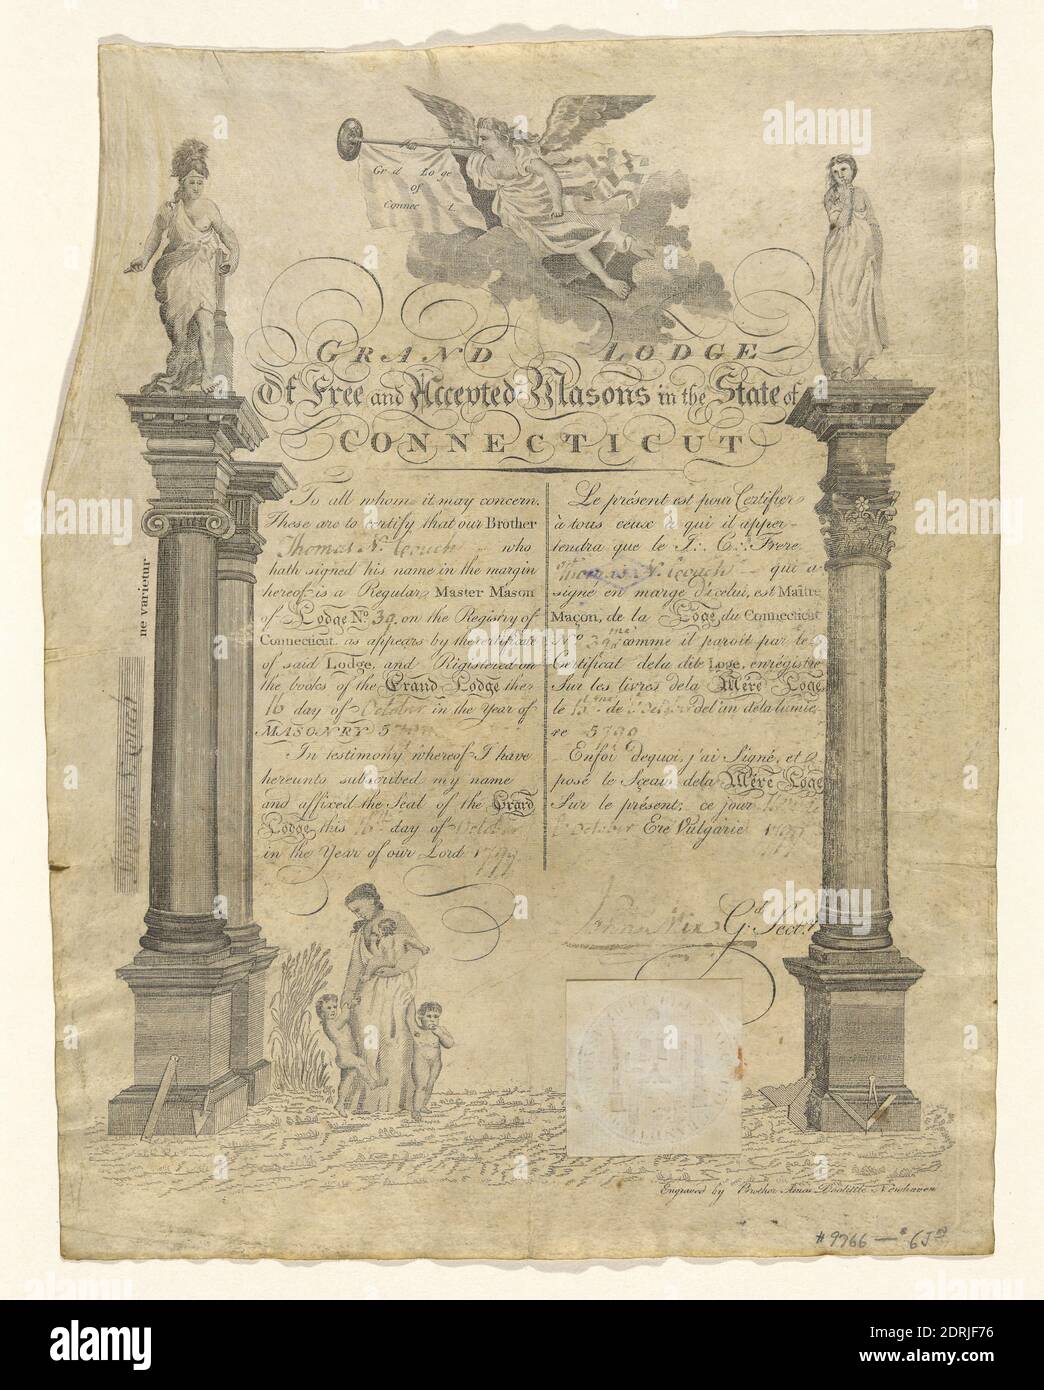 Gr d Lo ge
of
Connec t
GRAND LODGE
Of Free and Accepted Masons in the State of
CONNECTICUT
To all whom it may concern.
These are to certify that our Brother
Thomas N. Couch who
hath signed his name in the margin
hereof is a Regular Master Mason
of Lodge No. 39, on the Registry of
Connecticut, as appears by the certificate
of said Lodge, and Rigistered on
the books of the Grand Lodge the
16 day of October in the Year of
MASONRY 5799
In testimony whereof I have
hereunto subscribed my name
and affixed the Seal of the Grand
Lodge this 16th day of October
in the Year of our Lord 1799
Le présent est pour Certifier
à tous ceux à qui il apper-
tendra que le T.. C.. Frere
Thomas N. Couch qui a
signé en marge d'icelui, est Maître
Maçon, de la Loge du Connecticut
No. 39 me comme il paroit par le
Certificat de la dite Loge, enrégistré
Sur les livres de la Mère Loge
le de October del'an dela lumie
re 5799
Enfoi dequoi, j'ai Signé, et
posé le Sçeau dela Mère Loge
Sur le présent; ce jour
October Ere Vulgàrie 1799
ne varietur
Thomas N. Couch
John Mix Gd. Sect.y
Engraved by Brother Amos Doolittle Newhaven
#9766 — 65
alamy
alamy
Image ID: 2DRJF76
www.alamy.com